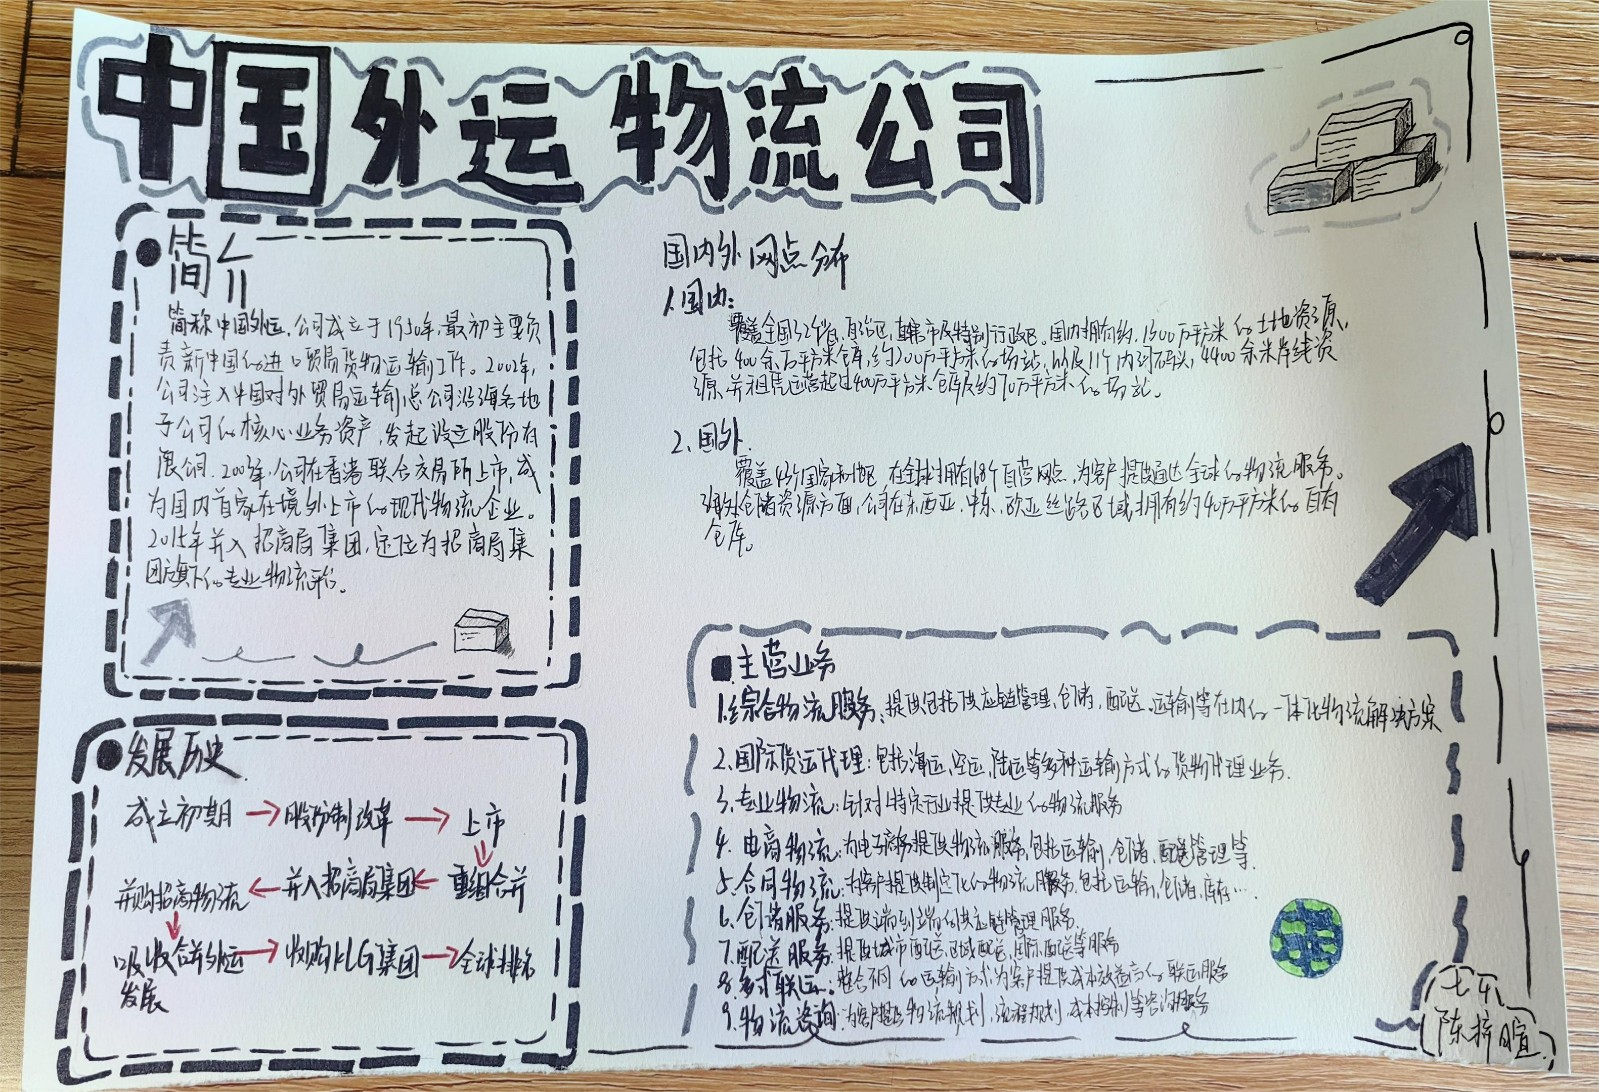 中国外运物流公司
简介
简称中国外运,公司成立于1950年,最初主要负
责新中国的进口贸易货物运输工作。2002年,
公司注入中国对外贸易运输总公司沿海各地
子公司的核心业务资产,发起设立股份有
限公司.2003年,公司在香港联合交易所上市,成
为国内首家在境外上市的现代物流企业。
2015年并入招商局集团,定位为招商局集
团旗下的专业物流平台。
发展历史
成立初期→股份制改革→上市
并购招商物流←并入招商局集团←重组合并
吸收合并外运→收购KLG集团→全球排名
发展
国内外网点分布
1.国内:
覆盖全国32个省,自治区,直辖市及特别行政区。国内拥有约1300万平方米的土地资源,
包括400余万平方米仓库,约200万平方米的场站,以及11个内河码头,4400余米岸线资
源,并租赁运营超过400万平方米仓库及约70万平方米的场站。
2.国外.
覆盖45个国家和地区,在全球拥有68个自营网点,为客户提供通达全球的物流服务。
海外仓储资源方面,公司在东西亚,中东,欧亚丝路区域拥有约40万平方米的自有
仓库。
主营业务
1.综合物流服务:提供包括供应链管理,仓储,配送、运输等在内的一体化物流解决方案
2.国际货运代理:包括海运,空运,陆运等多种运输方式的货物代理业务.
3.专业物流:针对特定行业提供专业的物流服务
4.电商物流:为电子商务提供物流服务,包括运输,仓储,配送管理等.
5.合同物流:为客户提供制定化的物流服务,包括运输,仓储,库存…
6.仓储服务:提供端到端的供应链管理服务.
7.配送服务:提供城市配送,区域配送,国际配送等服务
8.多式联运:整合不同的运输方式,为客户提供成本效益高的联运服务
9.物流咨询:为客户提供物流规划,流程规划,成本控制等咨询服务
陈梓暄